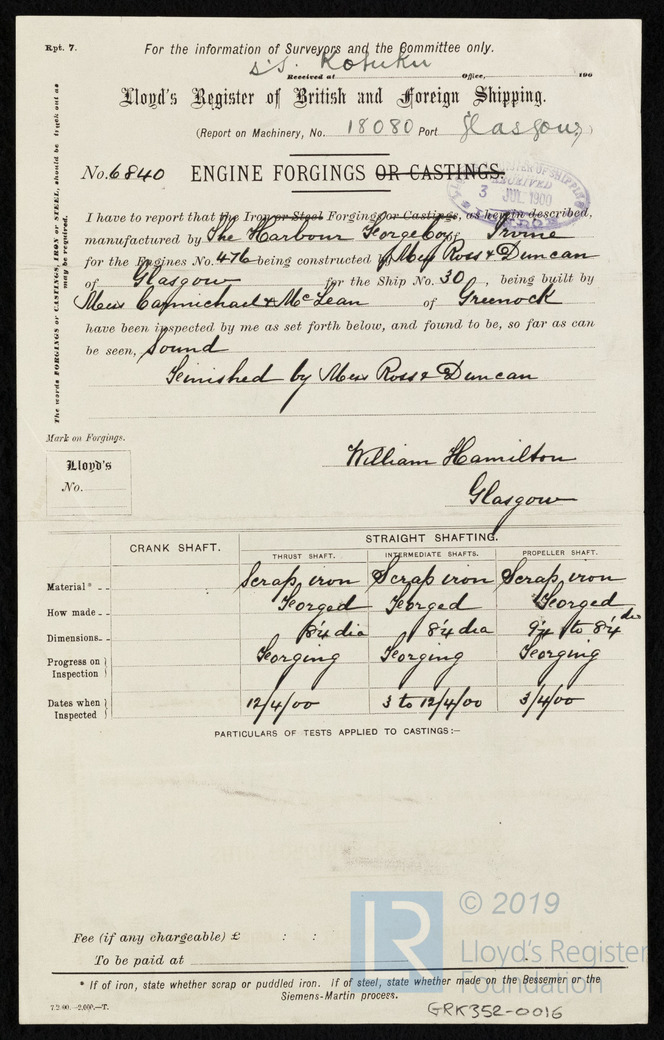 Rpt. 7.
For the information of Surveyors and the Committee only.
S.S. Kotuku
Received at Office, 190
Lloyd's Register of British and Foreign Shipping.
(Report on Machinery, No. 18080 Port Glasgow)
No. 6840 ENGINE FORGINGS OR CASTINGS.
LLOYD'S REGISTER OF SHIPPING
RECEIVED
3 JUL 1900
LONDON
The words FORGINGS or CASTINGS, IRON or STEEL, should be struck out as
may be required.
I have to report that the Iron or Steel Forgings or Castings, as herein described,
manufactured by The Harbour Forge Coy of Irvine
for the Engines No. 476 being constructed by Mess Ross & Duncan
of Glasgow for the Ship No. 30, being built by
Mess Carmichael & McLean of Greenock
have been inspected by me as set forth below, and found to be, so far as can
be seen, Sound
Finished by Mess Ross & Duncan
Mark on Forgings.
Lloyd's
No.
William Hamilton
Glasgow
CRANK SHAFT. STRAIGHT SHAFTING.
THRUST SHAFT. INTERMEDIATE SHAFTS. PROPELLER SHAFT.
Material* Scrap iron Scrap iron Scrap iron
How made Forged Forged Forged
Dimensions 8¼ dia 8¼ dia 9¼ to 8¼ dia
Progress on Inspection Forging Forging Forging
Dates when Inspected 12/4/00 3 to 12/4/00 3/4/00
PARTICULARS OF TESTS APPLIED TO CASTINGS:–
Fee (if any chargeable) £ : :
To be paid at
* If of iron, state whether scrap or puddled iron. If of steel, state whether made on the Bessemer or the
Siemens-Martin process.
7.2.00.—2,000.—T.
GRK352-0016
LR
© 2019
Lloyd's Register
Foundation